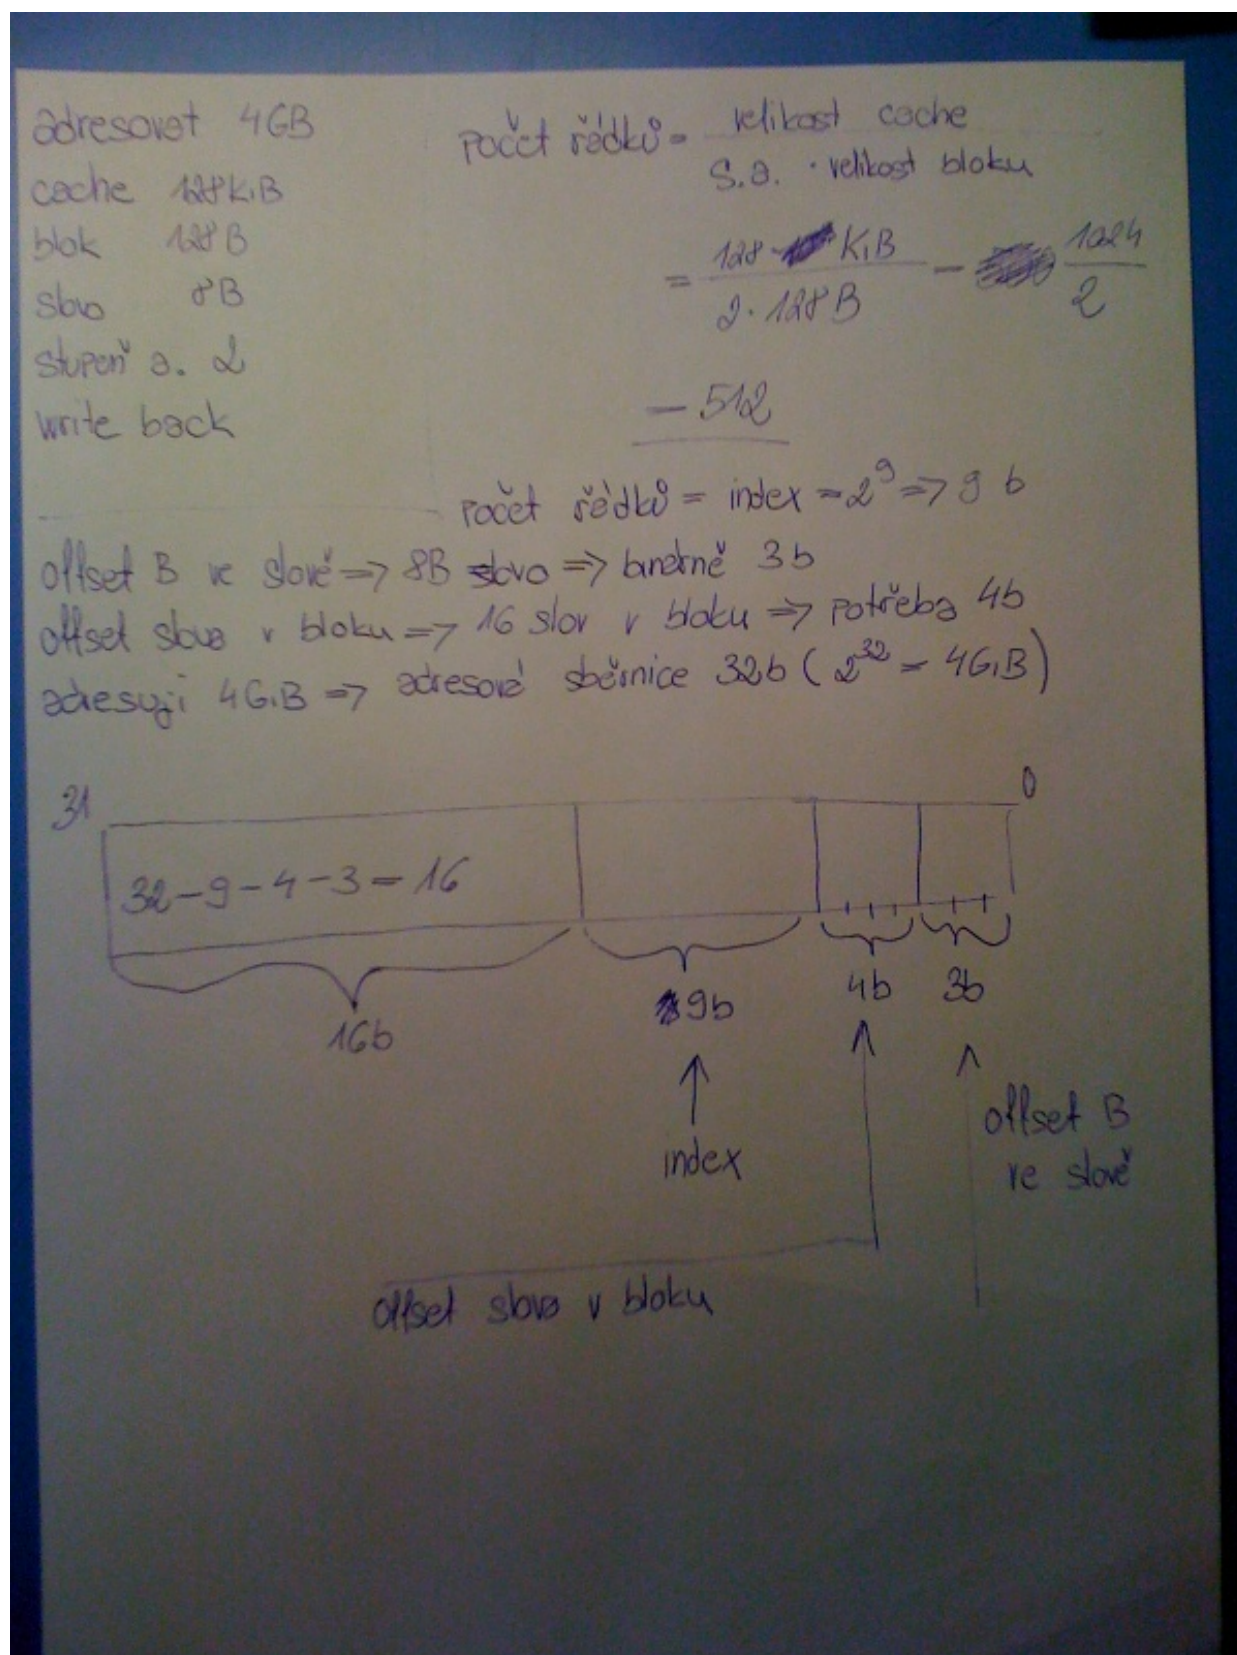 adresovat 4GB
cache 128KiB
blok 128B
slovo 8B
stupeň a. 2
write back
počet řádků = velikost cache
s.a. · velikost bloku
= 128 KiB = 1024
2·128B 2
= 512
počet řádků = index = 2^9 => 9 b
offset B ve slově => 8B slovo => binárně 3b
offset slova v bloku => 16 slov v bloku => potřeba 4b
adresuji 4GiB => adresová sběrnice 32b (2^32 = 4GiB)
31 0
32-9-4-3=16
16b 9b 4b 3b
index
offset B
ve slově
offset slova v bloku